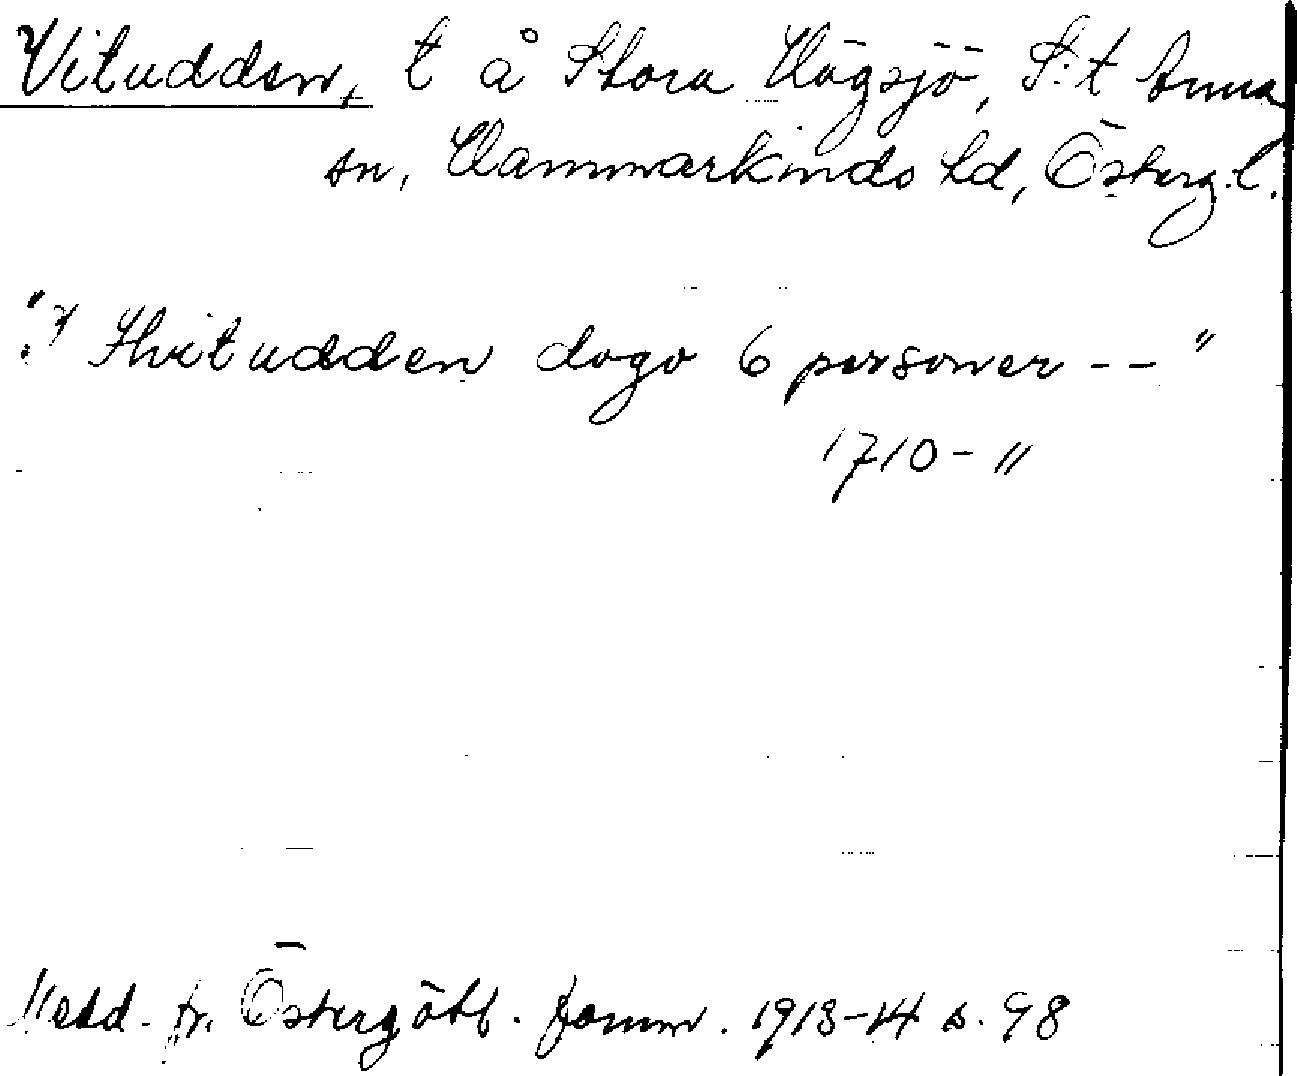 Vitudden, t å Stora Hägsjö, S:t Anna
sn, Hammarkinds hd, Österg.l.
"I Hvitudden dogo 6 personer -- "
1710 - "
Medd. fr. Östergötl. fornm. 1913-14 s. 98